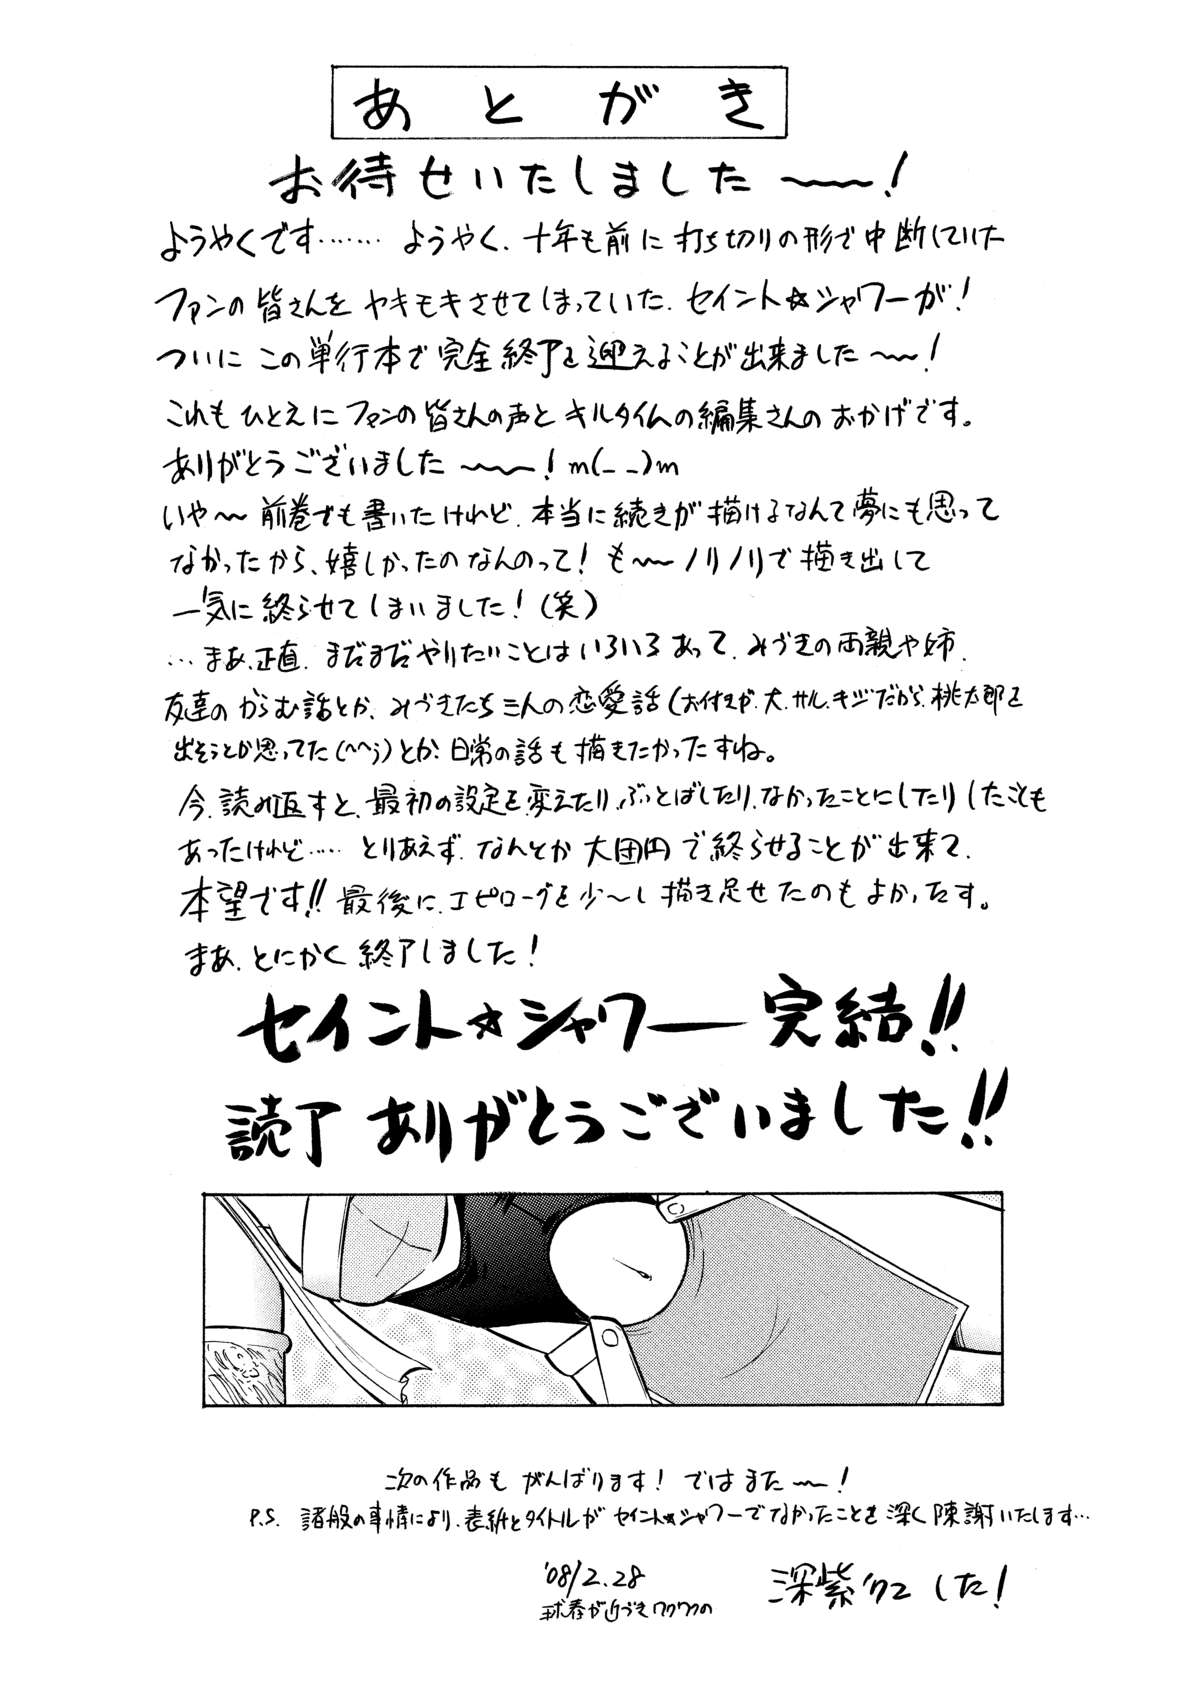 あとがき
お待せいたしました〜〜!
ようやくです…… ようやく、十年も前に打ち切りの形で中断していた
ファンの皆さんを ヤキモキさせてしまっていた、セイント☆シャワーが!
ついに この単行本で完全終了を迎えることが出来ました〜〜!
これもひとえにファンの皆さんの声と キルタイムの編集さんのおかげです。
ありがとうございました〜〜! m(_ _)m
いや〜〜 前巻でも書いたけれど、本当に続きが描けるなんて夢にも思って
なかったから、嬉しかったのなんのって! も〜〜ノリノリで描き出して
一気に終らせてしまいました!(笑)
…まあ、正直、まだまだやりたいことはいろいろあって、みづきの両親や姉、
友達のからむ話とか、みづきたち三人の恋愛話(お付きが、犬、サル、キジだから、桃太郎を
出そうとか思ってた(^^;)とか、日常の話も描きたかったすね。
今、読み返すと、最初の設定を変えたり、ぶっとばしたり、なかったことにしたりしたことも
あったけれど…… とりあえず、なんとか大団円で終らせることが出来て、
本望です!! 最後に、エピローグを少〜し描き足せたのもよかったす。
まあ、とにかく終了しました!
セイント☆シャワー完結!!
読了ありがとうございました!!
次の作品も がんばります! ではまた〜〜!
P.S. 諸般の事情により、表紙とタイトルが セイント☆シャワーでなかったことを深く陳謝いたします…
'08/2.28
球春が近づきワクワクの
深紫 でした!